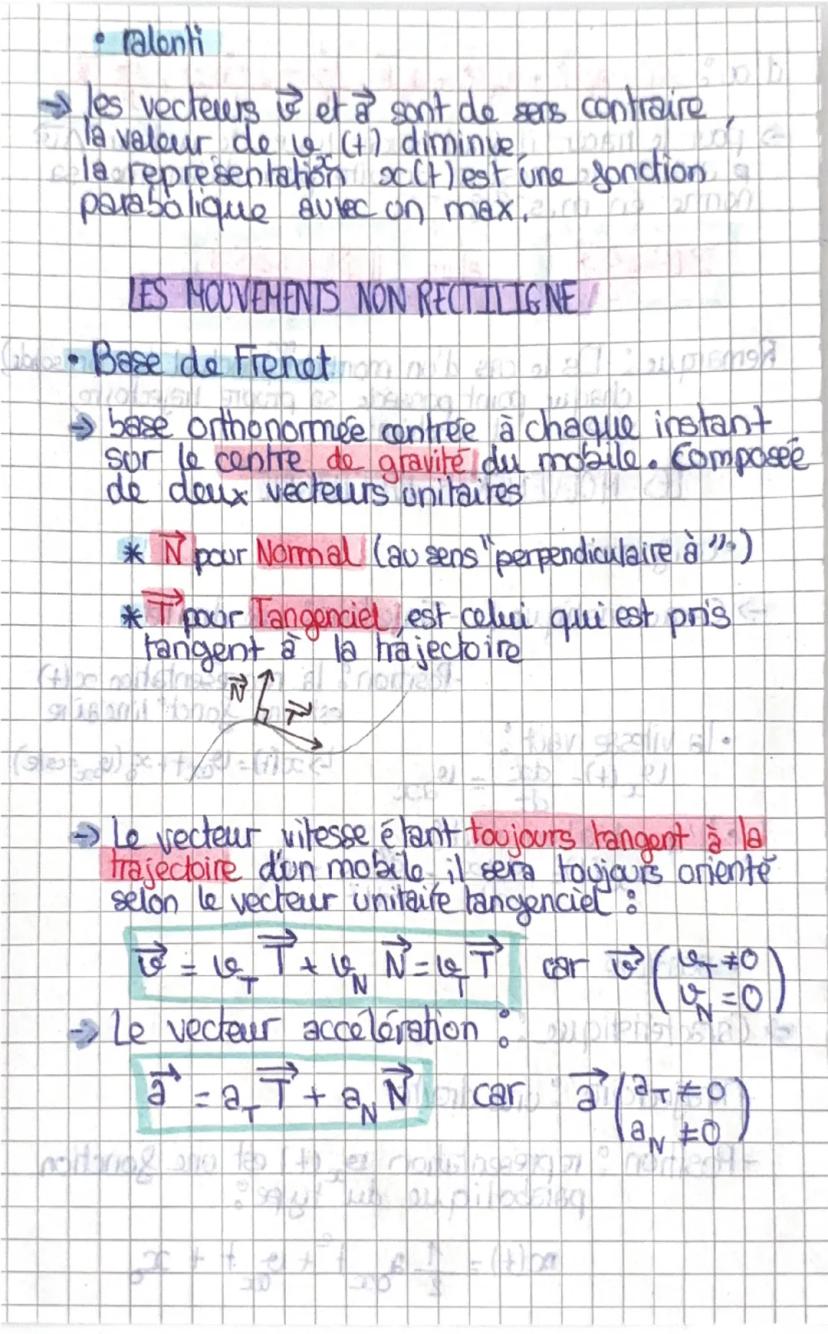 • ralenti
→ les vecteurs v⃗ et a⃗ sont de sens contraire,
la valeur de vₓ(t) diminue,
la représentation x(t) est une fonction
parabolique avec un max.
LES MOUVEMENTS NON RECTILIGNE
• Base de Frenet
→ base orthonormée centrée à chaque instant
sur le centre de gravité du mobile. Composée
de deux vecteurs unitaires
* N⃗ pour Normal (au sens "perpendiculaire à".)
* T⃗ pour Tangenciel, est celui qui est pris
tangent à la trajectoire
N⃗ T⃗
→ Le vecteur vitesse étant toujours tangent à la
trajectoire d'un mobile, il sera toujours orienté
selon le vecteur unitaire tangenciel :
v⃗ = v_T T⃗ + v_N N⃗ = v_T T⃗ car v⃗ (v_T ≠ 0
v_N = 0)
→ Le vecteur accélération :
a⃗ = a_T T⃗ + a_N N⃗ car a⃗ (a_T ≠ 0
a_N ≠ 0)